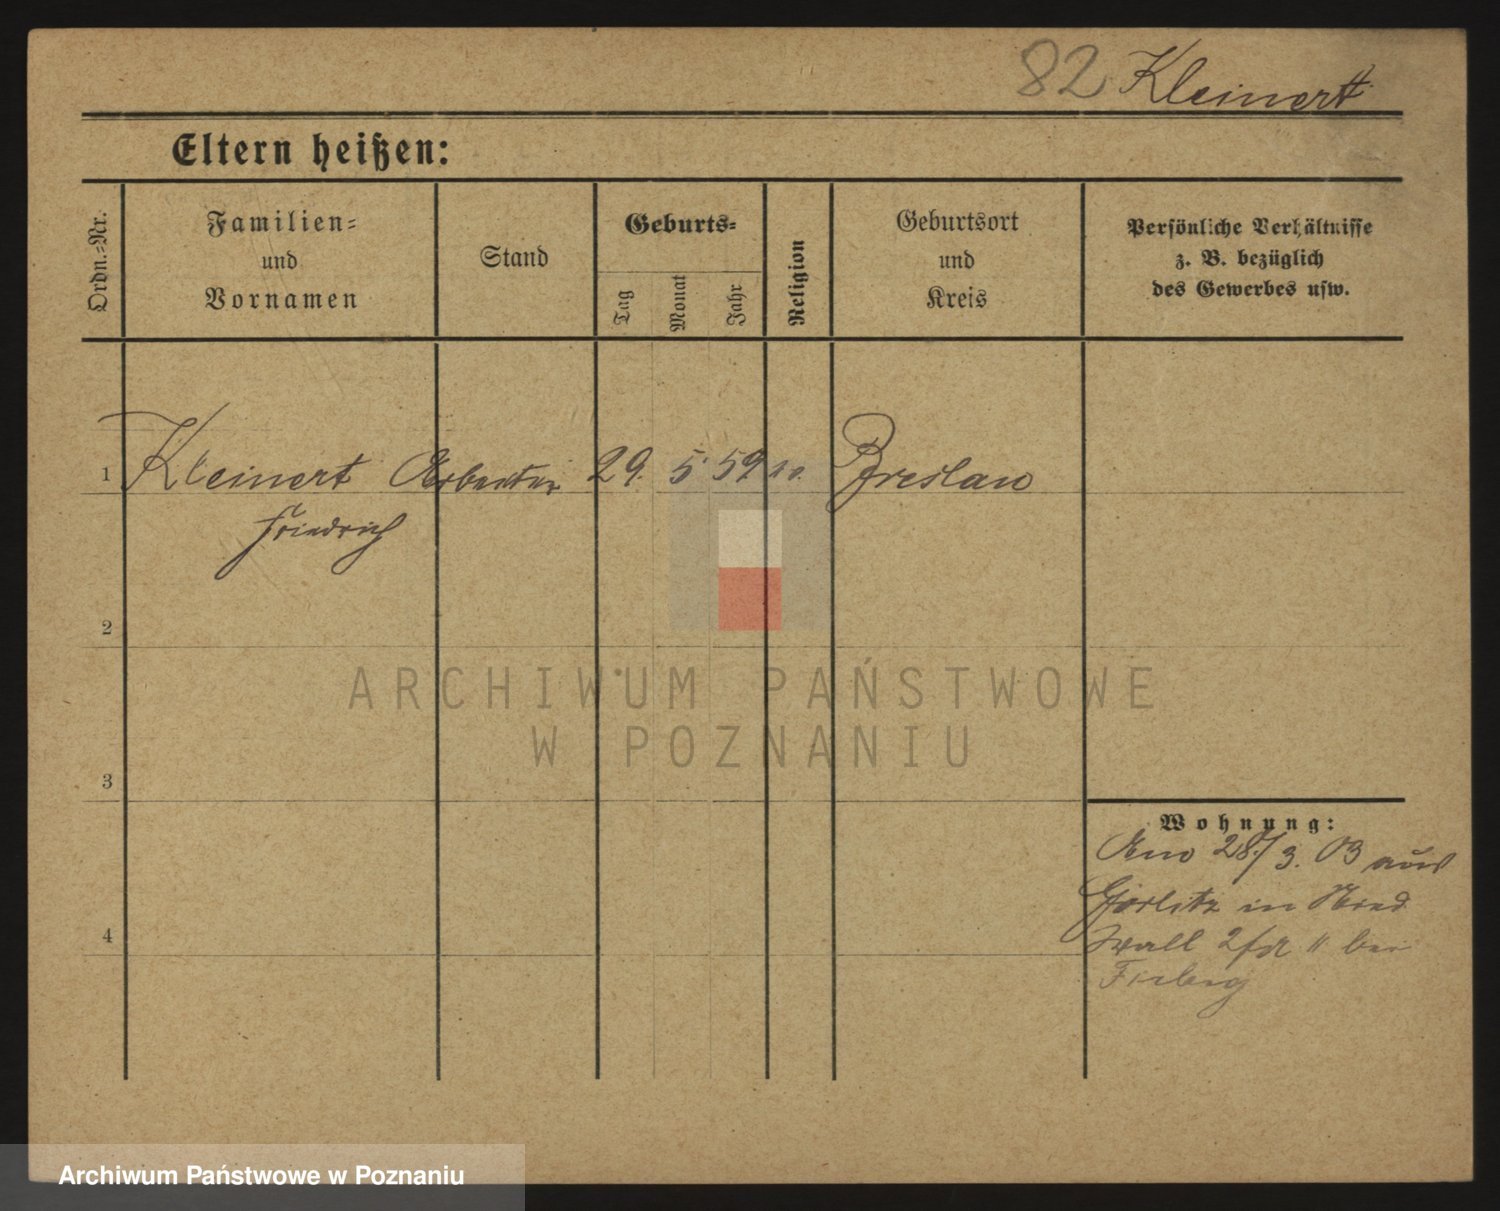 82 Kleinert
Eltern heißen:
Ordn.=Nr.
Familien=
und
Vornamen
Stand
Geburts=
Tag
Monat
Jahr
Religion
Geburtsort
und
Kreis
Persönliche Verhältnisse
z. B. bezüglich
des Gewerbes usw.
1 Kleinert Arbeiter 29. 5. 59 Breslau
Friedrich
2
3
4
Wohnung:
28./3. 03 aus
Görlitz in
wall bei
ARCHIWUM PAŃSTWOWE
W POZNANIU
Archiwum Państwowe w Poznaniu